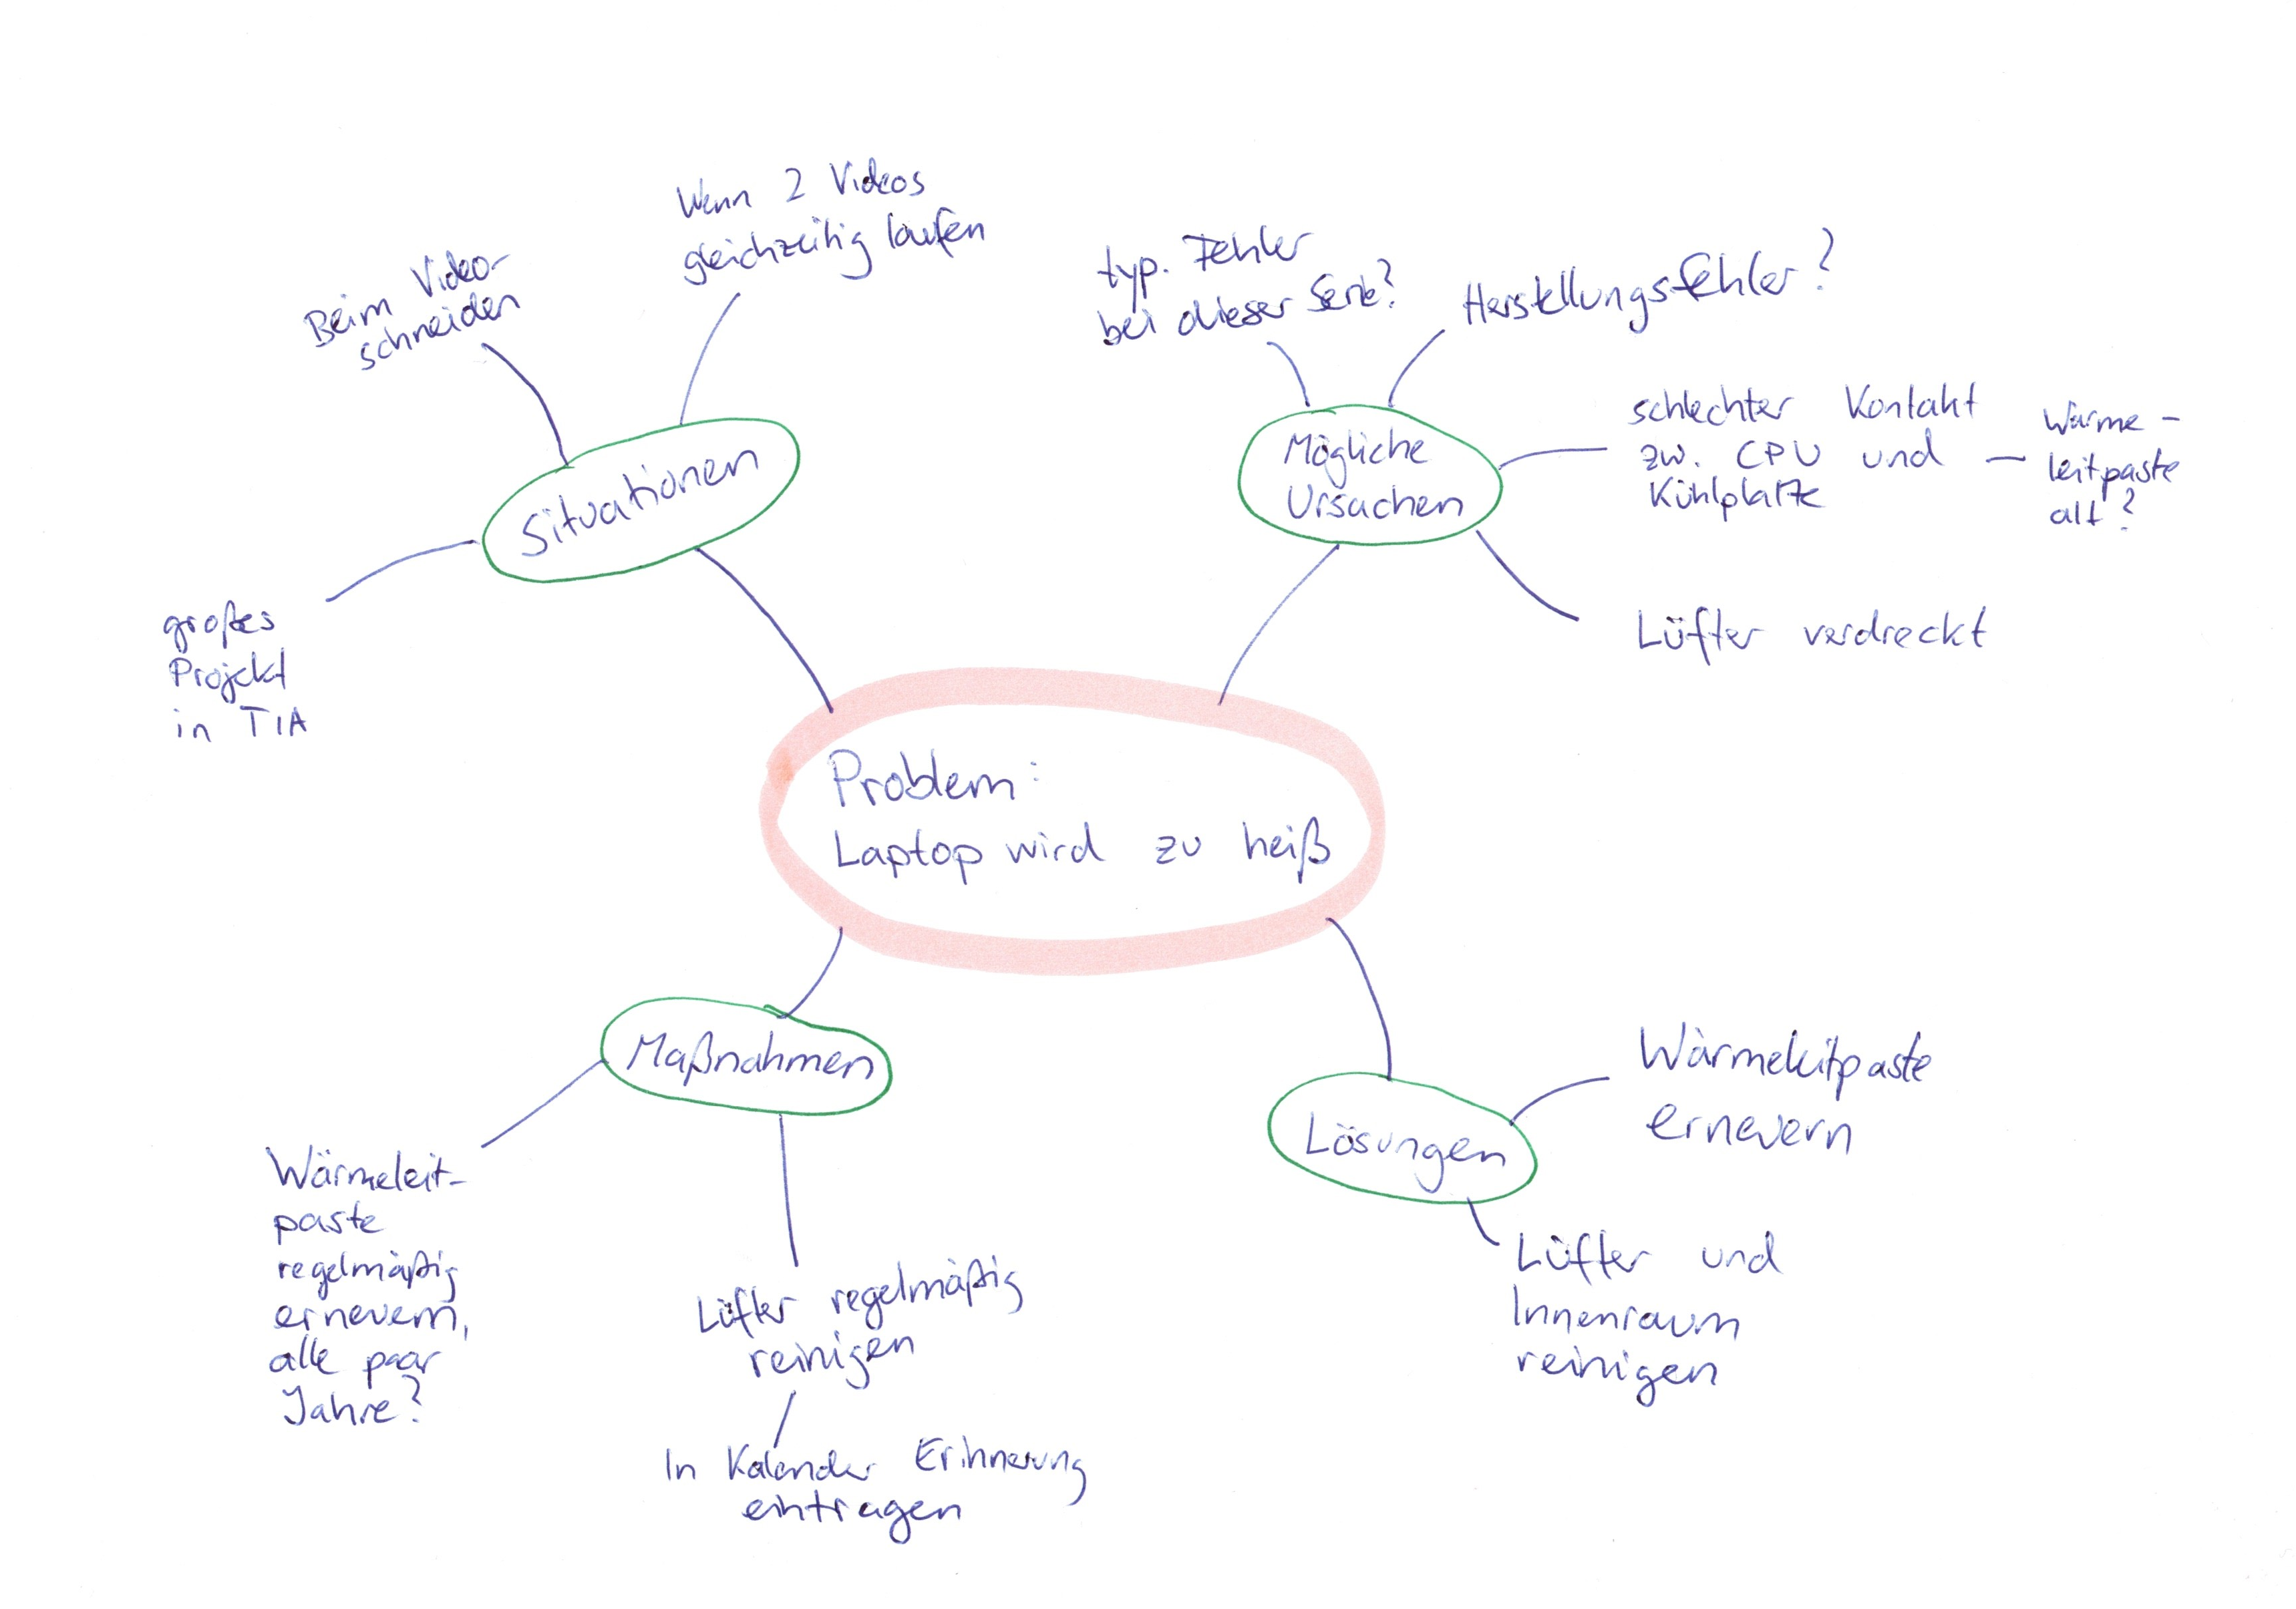 Wenn 2 Videos
gleichzeitig laufen
Beim Video-
schneiden
Situationen
großes
Projekt
in TIA
typ. Fehler
bei dieser Serie?
Herstellungsfehler?
Mögliche
Ursachen
schlechter Kontakt
zw. CPU und
Kühlplatte
Wärme-
leitpaste
alt?
Lüfter verdreckt
Problem:
Laptop wird zu heiß
Maßnahmen
Wärmeleit-
paste
regelmäßig
erneuern,
alle paar
Jahre?
Lüfter regelmäßig
reinigen
In Kalender Erinnerung
eintragen
Lösungen
Wärmeleitpaste
erneuern
Lüfter und
Innenraum
reinigen